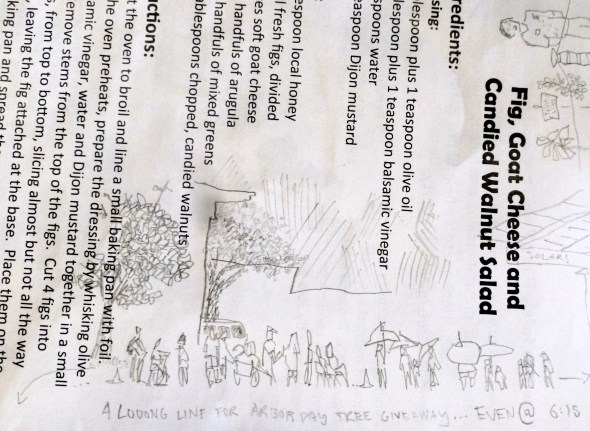 Fig, Goat Cheese and
Candied Walnut Salad
redients:
sing:
lespoon plus 1 teaspoon olive oil
lespoon plus 1 teaspoon balsamic vinegar
spoons water
easpoon Dijon mustard
espoon local honey
l fresh figs, divided
es soft goat cheese
handfuls of arugula
handfuls of mixed greens
ablespoons chopped, candied walnuts
ctions:
t the oven to broil and line a small baking pan with foil.
he oven preheats, prepare the dressing by whisking olive
amic vinegar, water and Dijon mustard together in a small
emove stems from the top of the figs. Cut 4 figs into
s, from top to bottom, slicing almost but not all the way
, leaving the fig attached at the base. Place them on the
king pan and spread the
SOLARI
A LOOONG LINE FOR ARBOR DAY TREE GIVEAWAY... EVEN @ 6:15